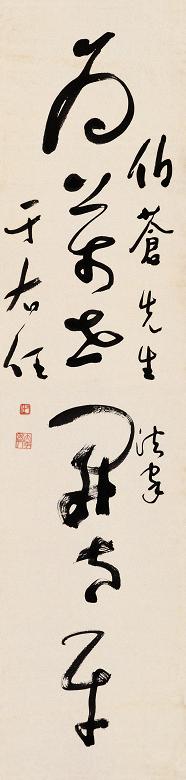 伯蒼先生法家
為萬世開太平
于右任